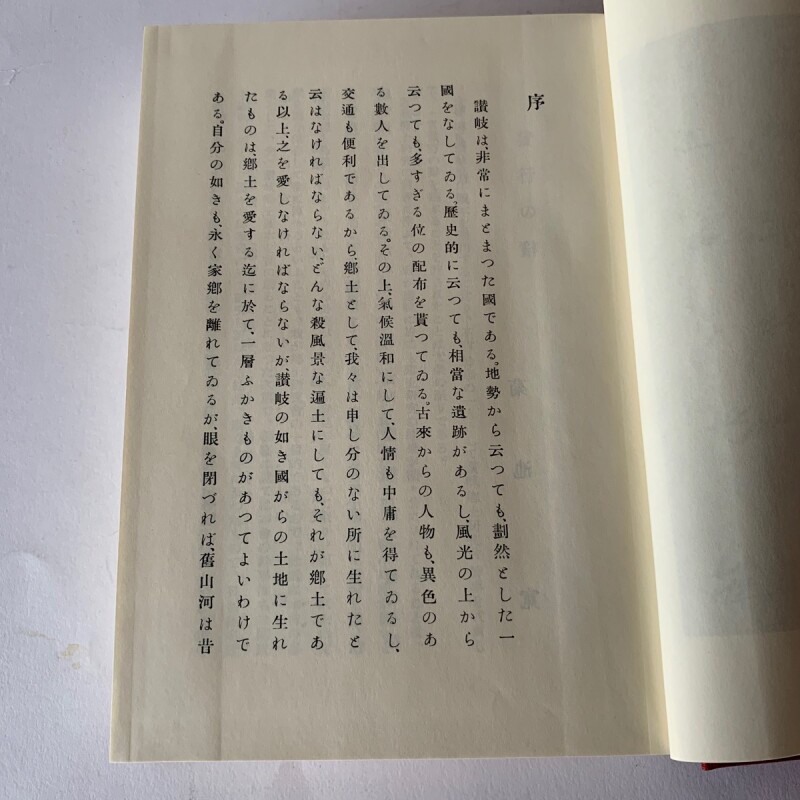 序
讃岐は、非常にまとまつた國である。地勢から云つても、劃然とした一
國をなしてゐる。歷史的に云つても、相當な遺跡があるし、風光の上から
云つても、多すぎる位の配布を貰つてゐる。古來からの人物も、異色のあ
る數人を出してゐる。その上、氣候溫和にして、人情も中庸を得てゐるし、
交通も便利であるから、鄕土として、我々は申し分のない所に生れたと
云はなければならない。どんな殺風景な逼土にしても、それが鄕土であ
る以上、之を愛しなければならないが、讃岐の如き國がらの土地に生れ
たものは、鄕土を愛する迄に於て、一層ふかきものがあつてよいわけで
ある。自分の如きも、永く家鄕を離れてゐるが、眼を閉づれば、舊山河は昔